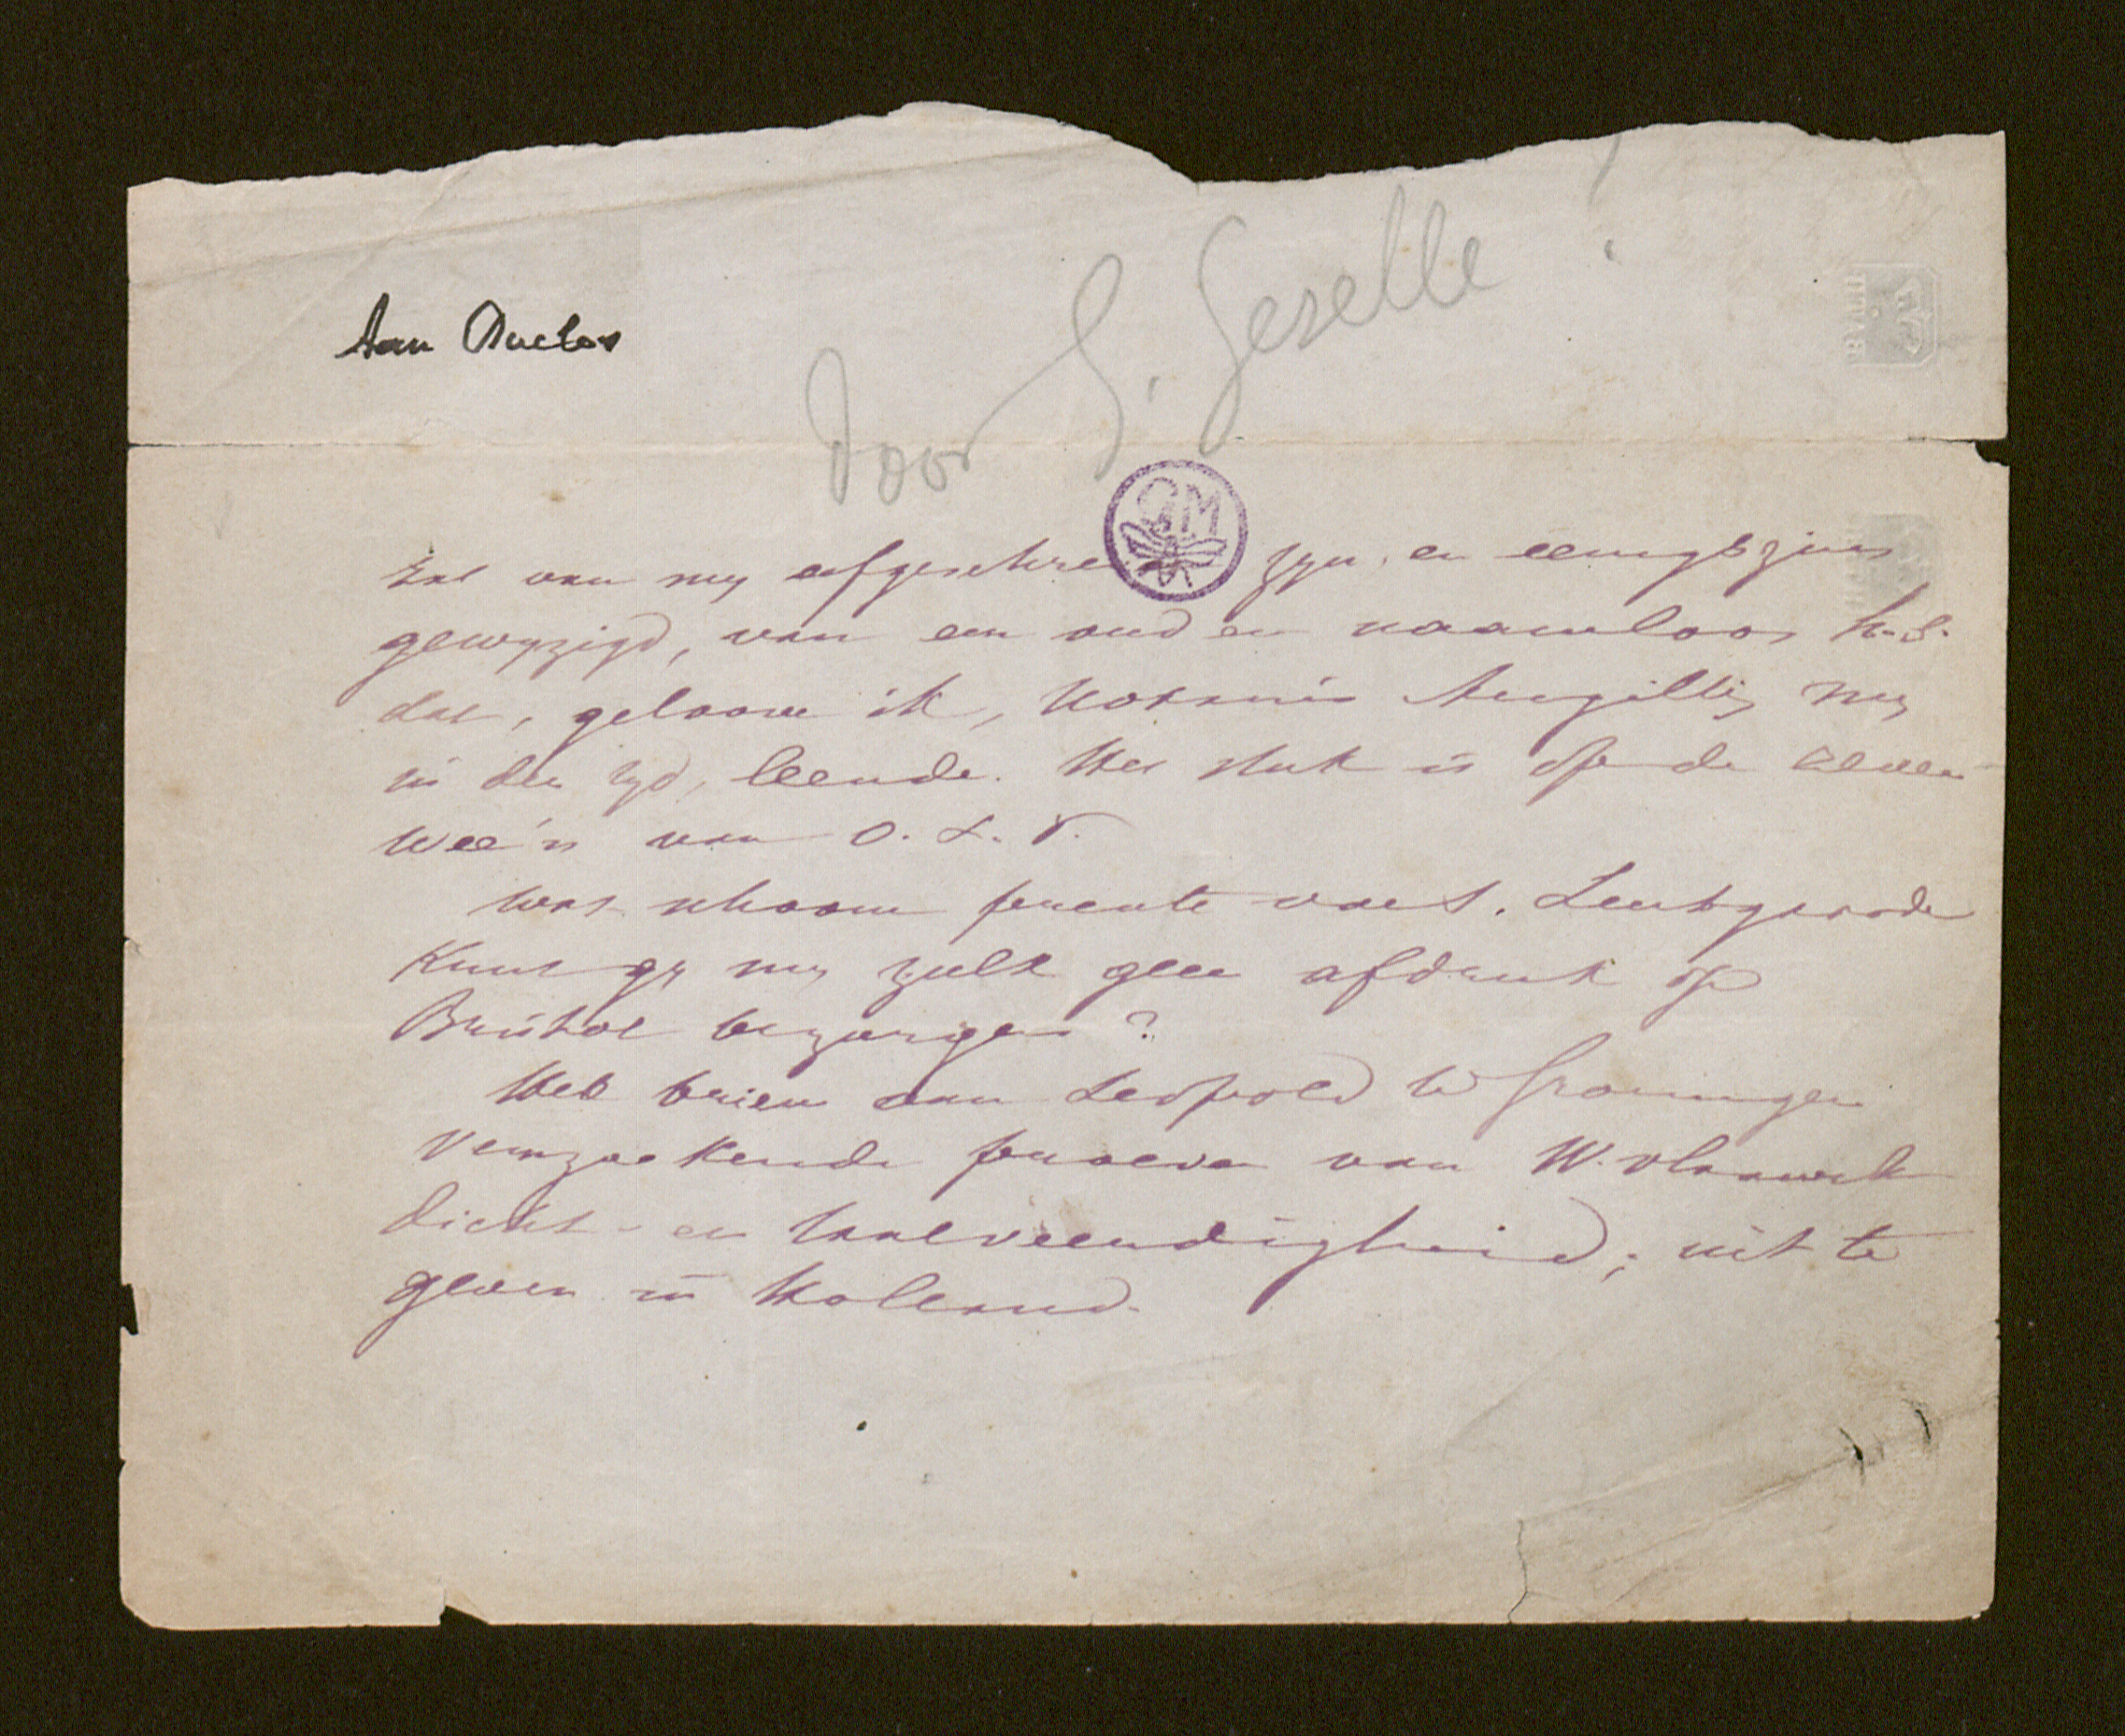 Aan Duclos
Door G. Gezelle
GM
Zal van my afgeschre zyn, en eenigszins
gewyzigd, van een oud en naamloos h.s.
dat, geloove ik, kozyn Angillis my
in den tyd, leende. Het stuk is op de zeven
wee'n van O. L. V.
Wat schoone prente van S. Leutgaarde
Kunt gy my zulk geen afdruk op
Bristol bezorgen?
Heb brieven van Leopold te Groningen
verzoekende proeven van W. vlaamsch
dicht- en taalveerdigheid; uit te
geven in Holland.